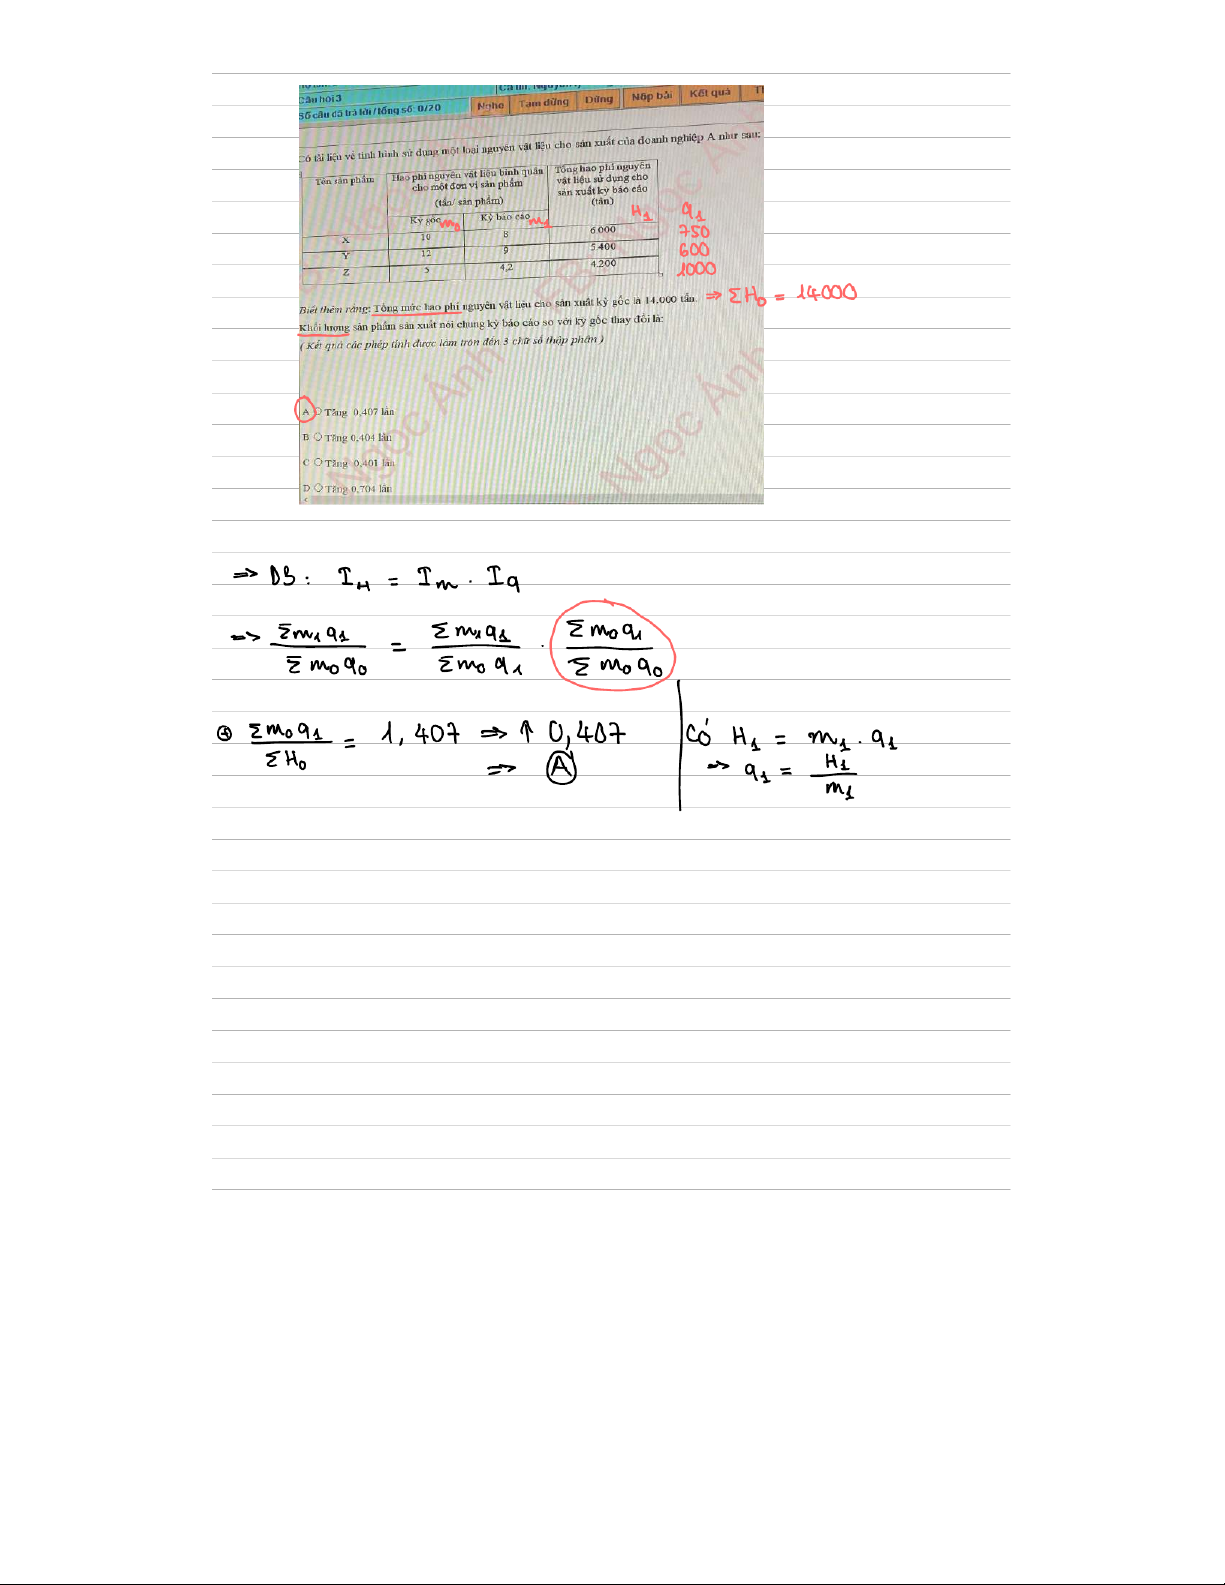 Câu hỏi 3
Số câu đã trả lời / tổng số: 0/20
Nghe Tạm dừng Dừng Nộp bài Kết quả
Có tài liệu về tình hình sử dụng một loại nguyên vật liệu cho sản xuất của doanh nghiệp A như sau:
Tên sản phẩm
Hao phí nguyên vật liệu bình quân cho một đơn vị sản phẩm
(tấn/ sản phẩm)
Tổng hao phí nguyên vật liệu sử dụng cho sản xuất kỳ báo cáo (tấn)
Kỳ gốc m0 Kỳ báo cáo m1 H1 q1
X 10 8 6.000 750
Y 12 9 5.400 600
Z 5 4,2 4.200 1000
Biết thêm rằng: Tổng mức hao phí nguyên vật liệu cho sản xuất kỳ gốc là 14.000 tấn. => ΣH0 = 14000
Khối lượng sản phẩm sản xuất nói chung kỳ báo cáo so với kỳ gốc thay đổi là:
( Kết quả các phép tính được làm tròn đến 3 chữ số thập phân )
A Tăng 0,407 lần
B Tăng 0,404 lần
C Tăng 0,401 lần
D Tăng 0,704 lần
Ngọc Ánh
Ngọc Ánh
=> DB: IH = Im . Iq
=> Σm1q1 / Σm0q0 = Σm1q1 / Σm0q1 . Σm0q1 / Σm0q0
⊕ Σm0q1 / ΣH0 = 1,407 => ↑ 0,407
=> A
Có H1 = m1 . q1
=> q1 = H1 / m1